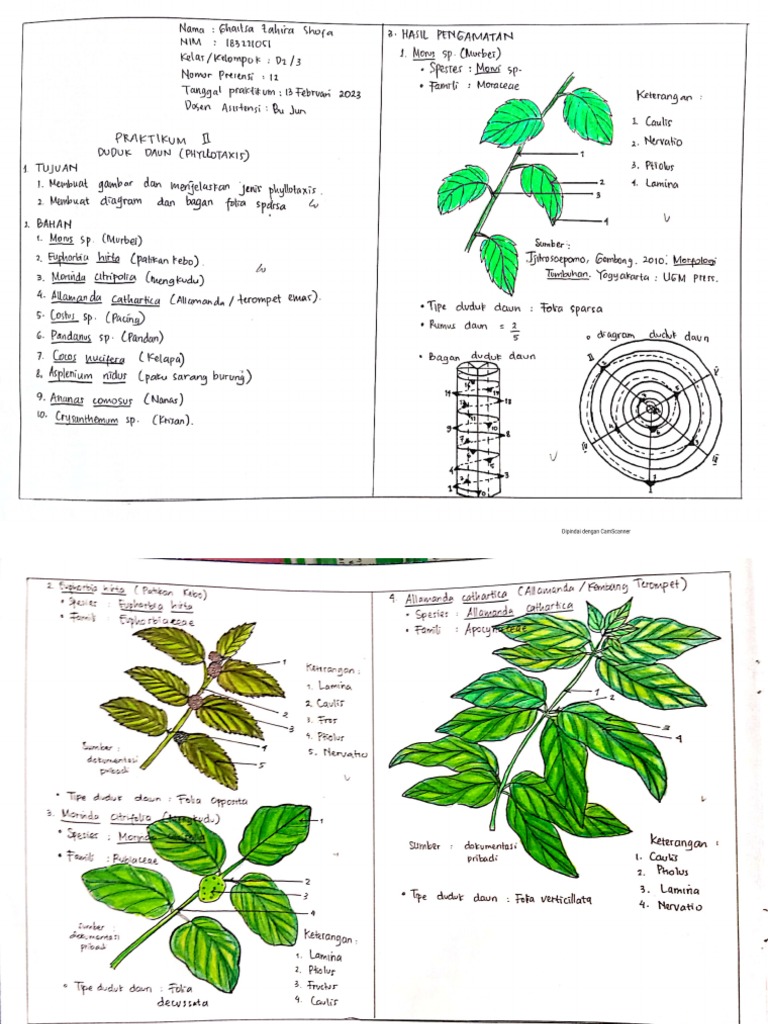 Nama : Ghailsa Zahira Shofa
NIM : 183221051
Kelas/Kelompok : D2/3
Nomor Presensi : 12
Tanggal praktikum : 13 Februari 2023
Dosen Asistensi : Bu Jun
PRAKTIKUM II
DUDUK DAUN (PHYLLOTAXIS)
1. TUJUAN
1. Membuat gambar dan menjelaskan jenis phyllotaxis.
2. Membuat diagram dan bagan folia sparsa
2. BAHAN
1. Morus sp. (Murbei)
2. Euphorbia hirta (patikan kebo).
3. Morinda citripolia (mengkudu)
4. Allamanda cathartica (Allamanda / terompet emas).
5. Costus sp. (Pacing)
6. Pandanus sp. (Pandan)
7. Cocos nucifera (Kelapa)
8. Asplenium nidus (paku sarang burung)
9. Ananas comosus (Nanas)
10. Crysanthemum sp. (Krisan).
3. HASIL PENGAMATAN
1. Morus sp. (Murbei)
• Spesies : Morus sp.
• Famili : Moraceae
Keterangan :
1. Caulis
2. Nervatio
3. Ptiolus
4. Lamina
1
2
3
4
Sumber :
Tjitrosoepomo, Gembong. 2010. Morfologi
Tumbuhan. Yogyakarta : UGM Press.
• Tipe duduk daun : Folia sparsa
• Rumus daun = 2/5
• Bagan duduk daun
o diagram duduk daun
Dipindai dengan CamScanner
2. Euphorbia hirta (Patikan Kebo)
• Spesies : Euphorbia hirta
• Famili : Euphorbiaceae
Keterangan :
1. Lamina
2. Caulis
3. Fros
4. Ptiolus
5. Nervatio
1
2
3
4
5
Sumber :
dokumentasi
pribadi
• Tipe duduk daun : Folia opposita
3. Morinda citrifolia (Mengkudu)
• Spesies : Morinda
• Famili : Rubiaceae
1
2
3
4
Sumber :
dokumentasi
pribadi
Keterangan :
1. Lamina
2. Ptiolus
3. Fructus
4. Caulis
• Tipe duduk daun : Folia
decussata
4. Allamanda cathartica (Allamanda / Kembang Terompet)
• Spesies : Allamanda cathartica
• Famili : Apocynaceae
1
2
3
4
Sumber : dokumentasi
pribadi
Keterangan :
1. Caulis
2. Ptiolus
3. Lamina
4. Nervatio
• Tipe duduk daun : Folia verticillata